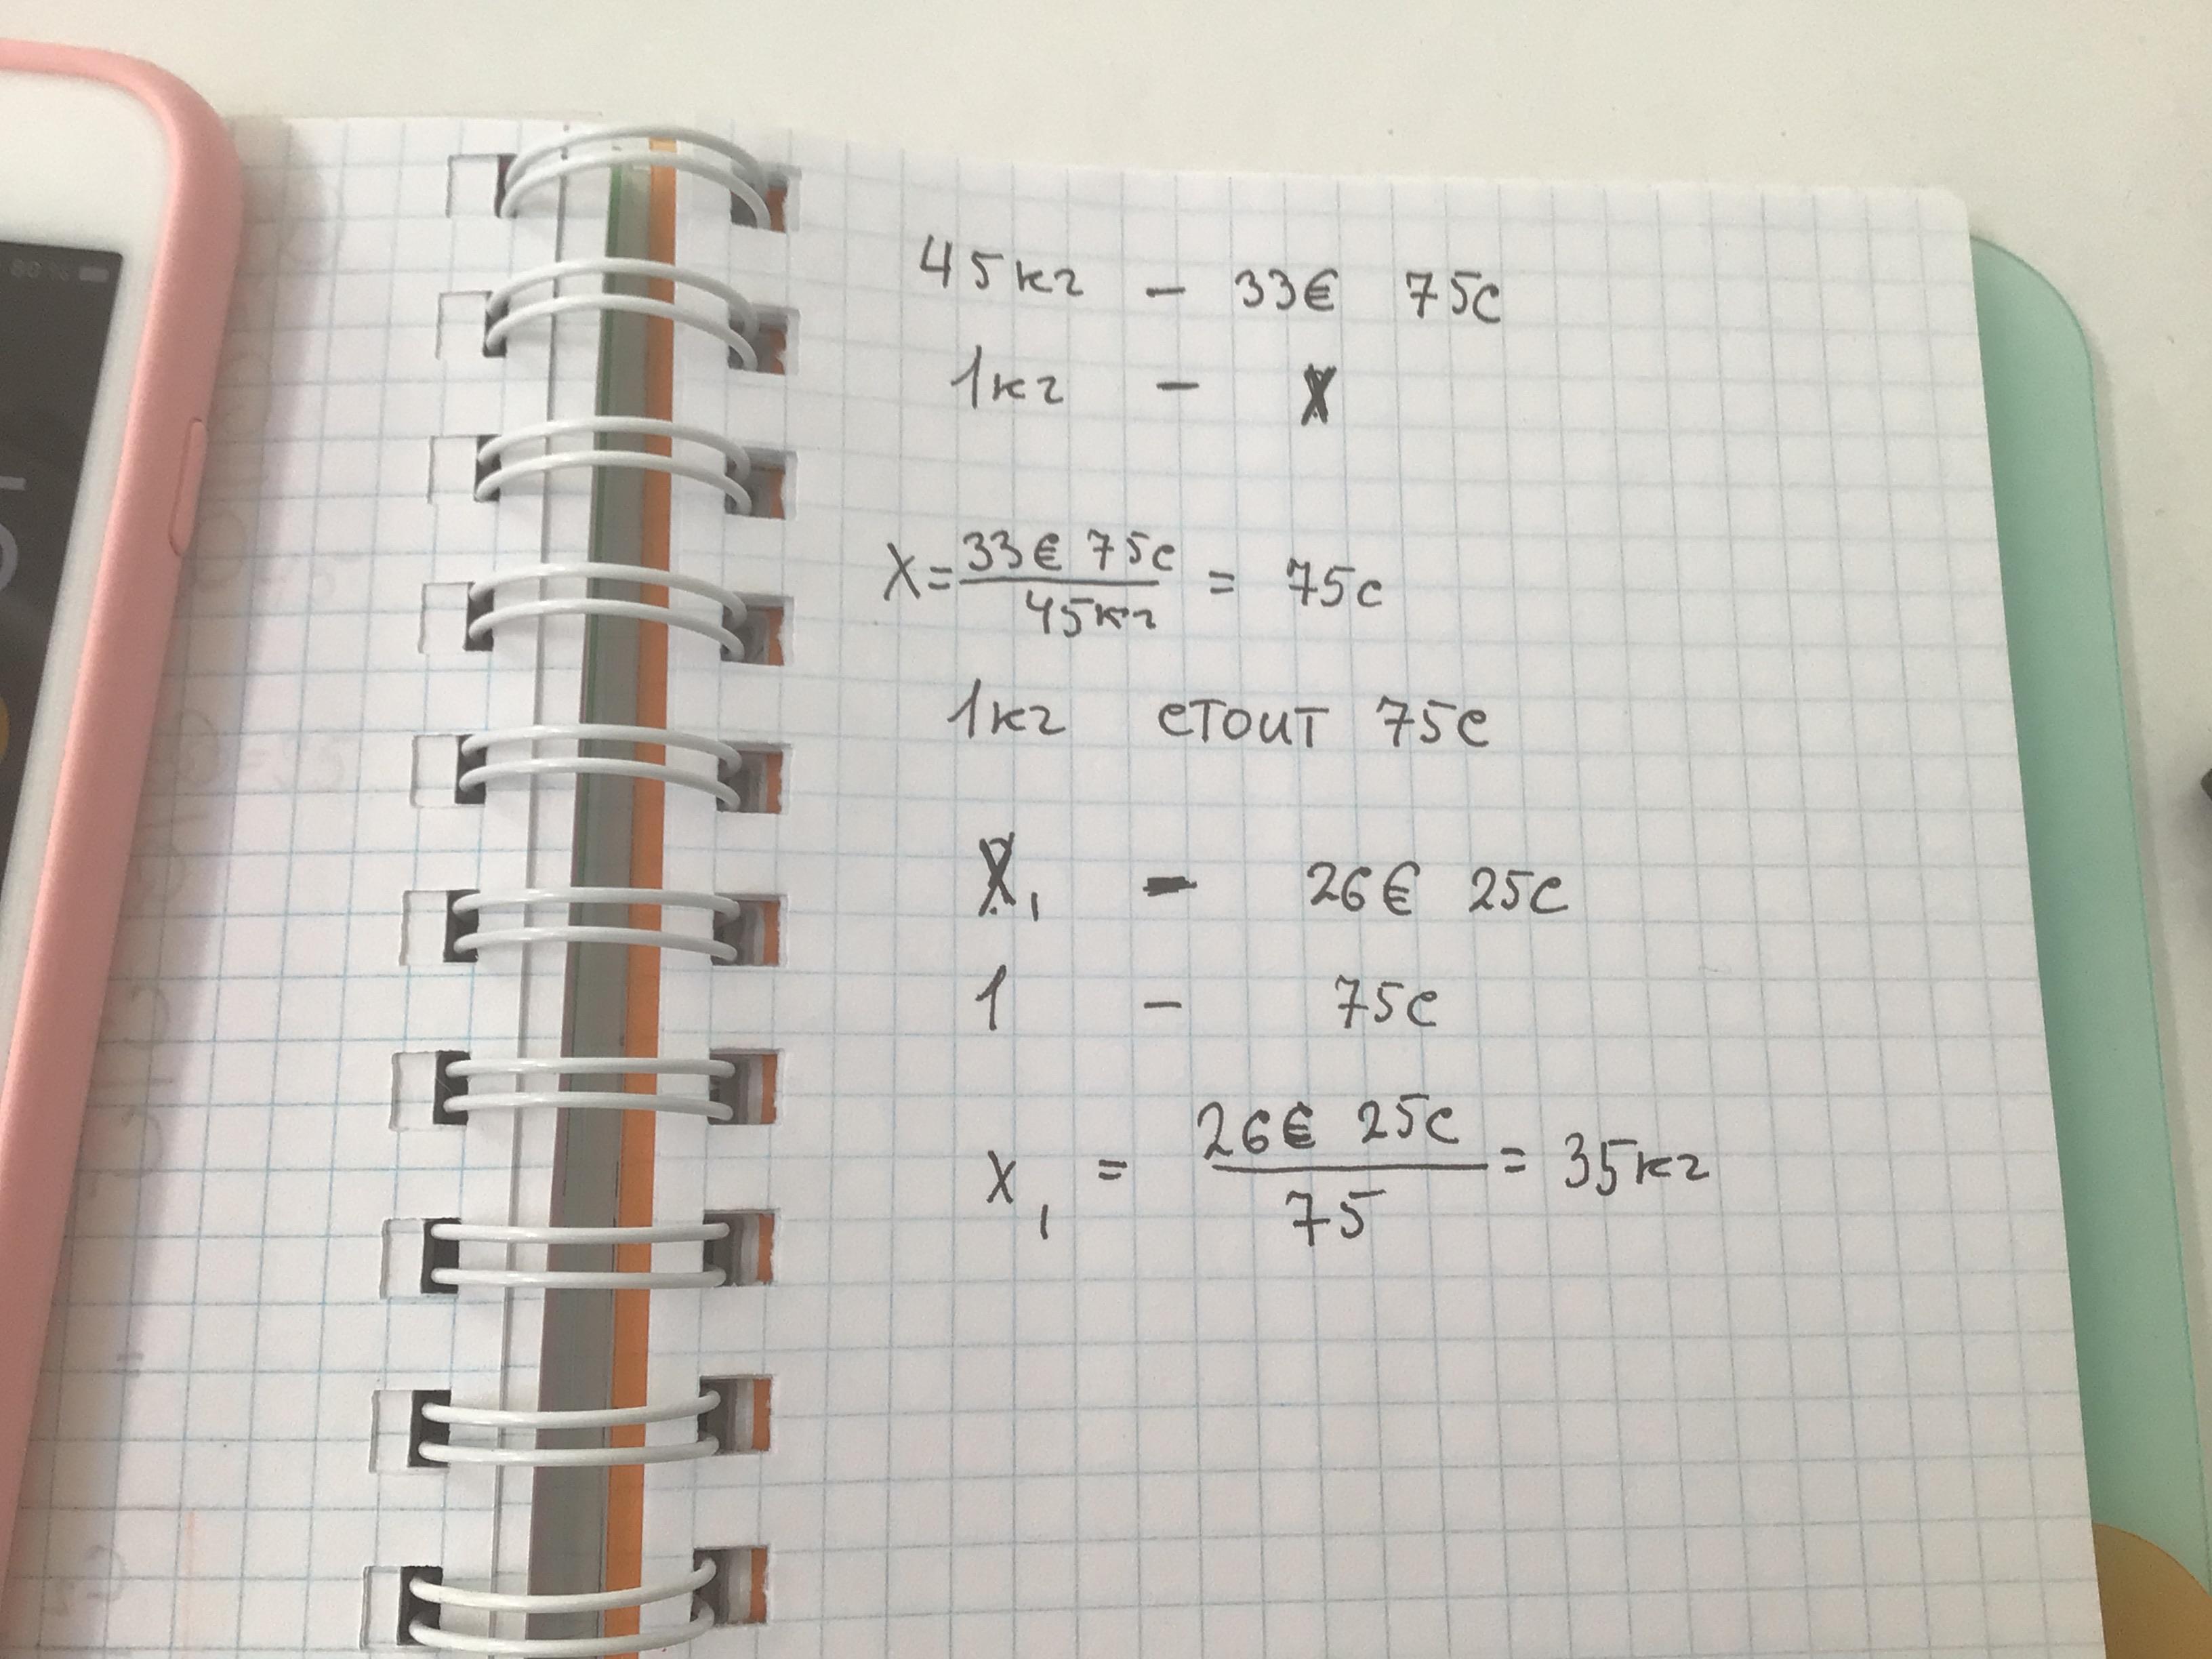 80%
45кг - 33€ 75c
1кг - X
X = 33€ 75c / 45кг = 75c
1кг стоит 75c
X₁ - 26€ 25c
1 - 75c
x₁ = 26€ 25c / 75 = 35кг